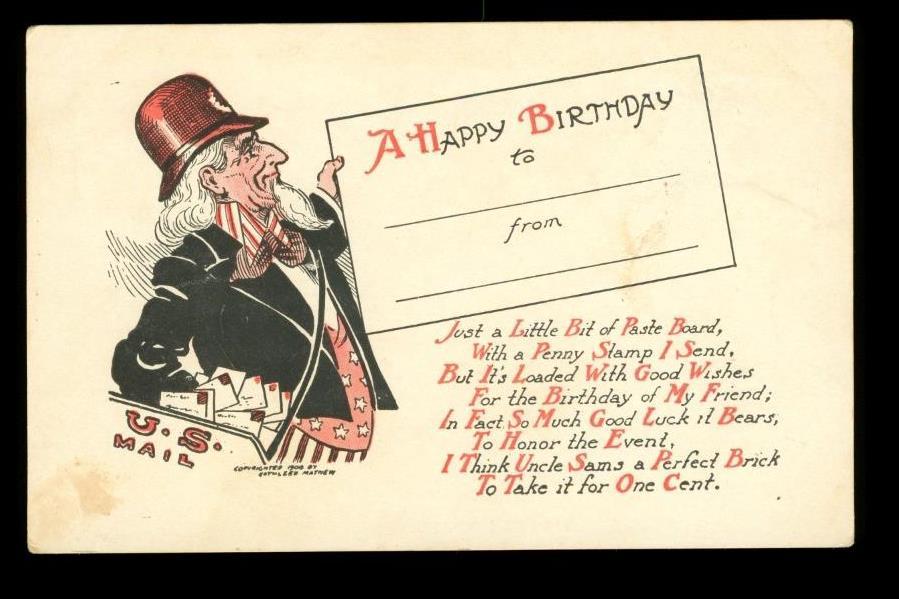 A HAPPY BIRTHDAY
to
from
Just a Little Bit of Paste Board,
With a Penny Stamp I Send,
But It's Loaded With Good Wishes
For the Birthday of My Friend;
In Fact, So Much Good Luck it Bears,
To Honor the Event,
I Think Uncle Sams a Perfect Brick
To Take it for One Cent.
U.S.
MAIL
COPYRIGHTED 1908 BY
MATHEW